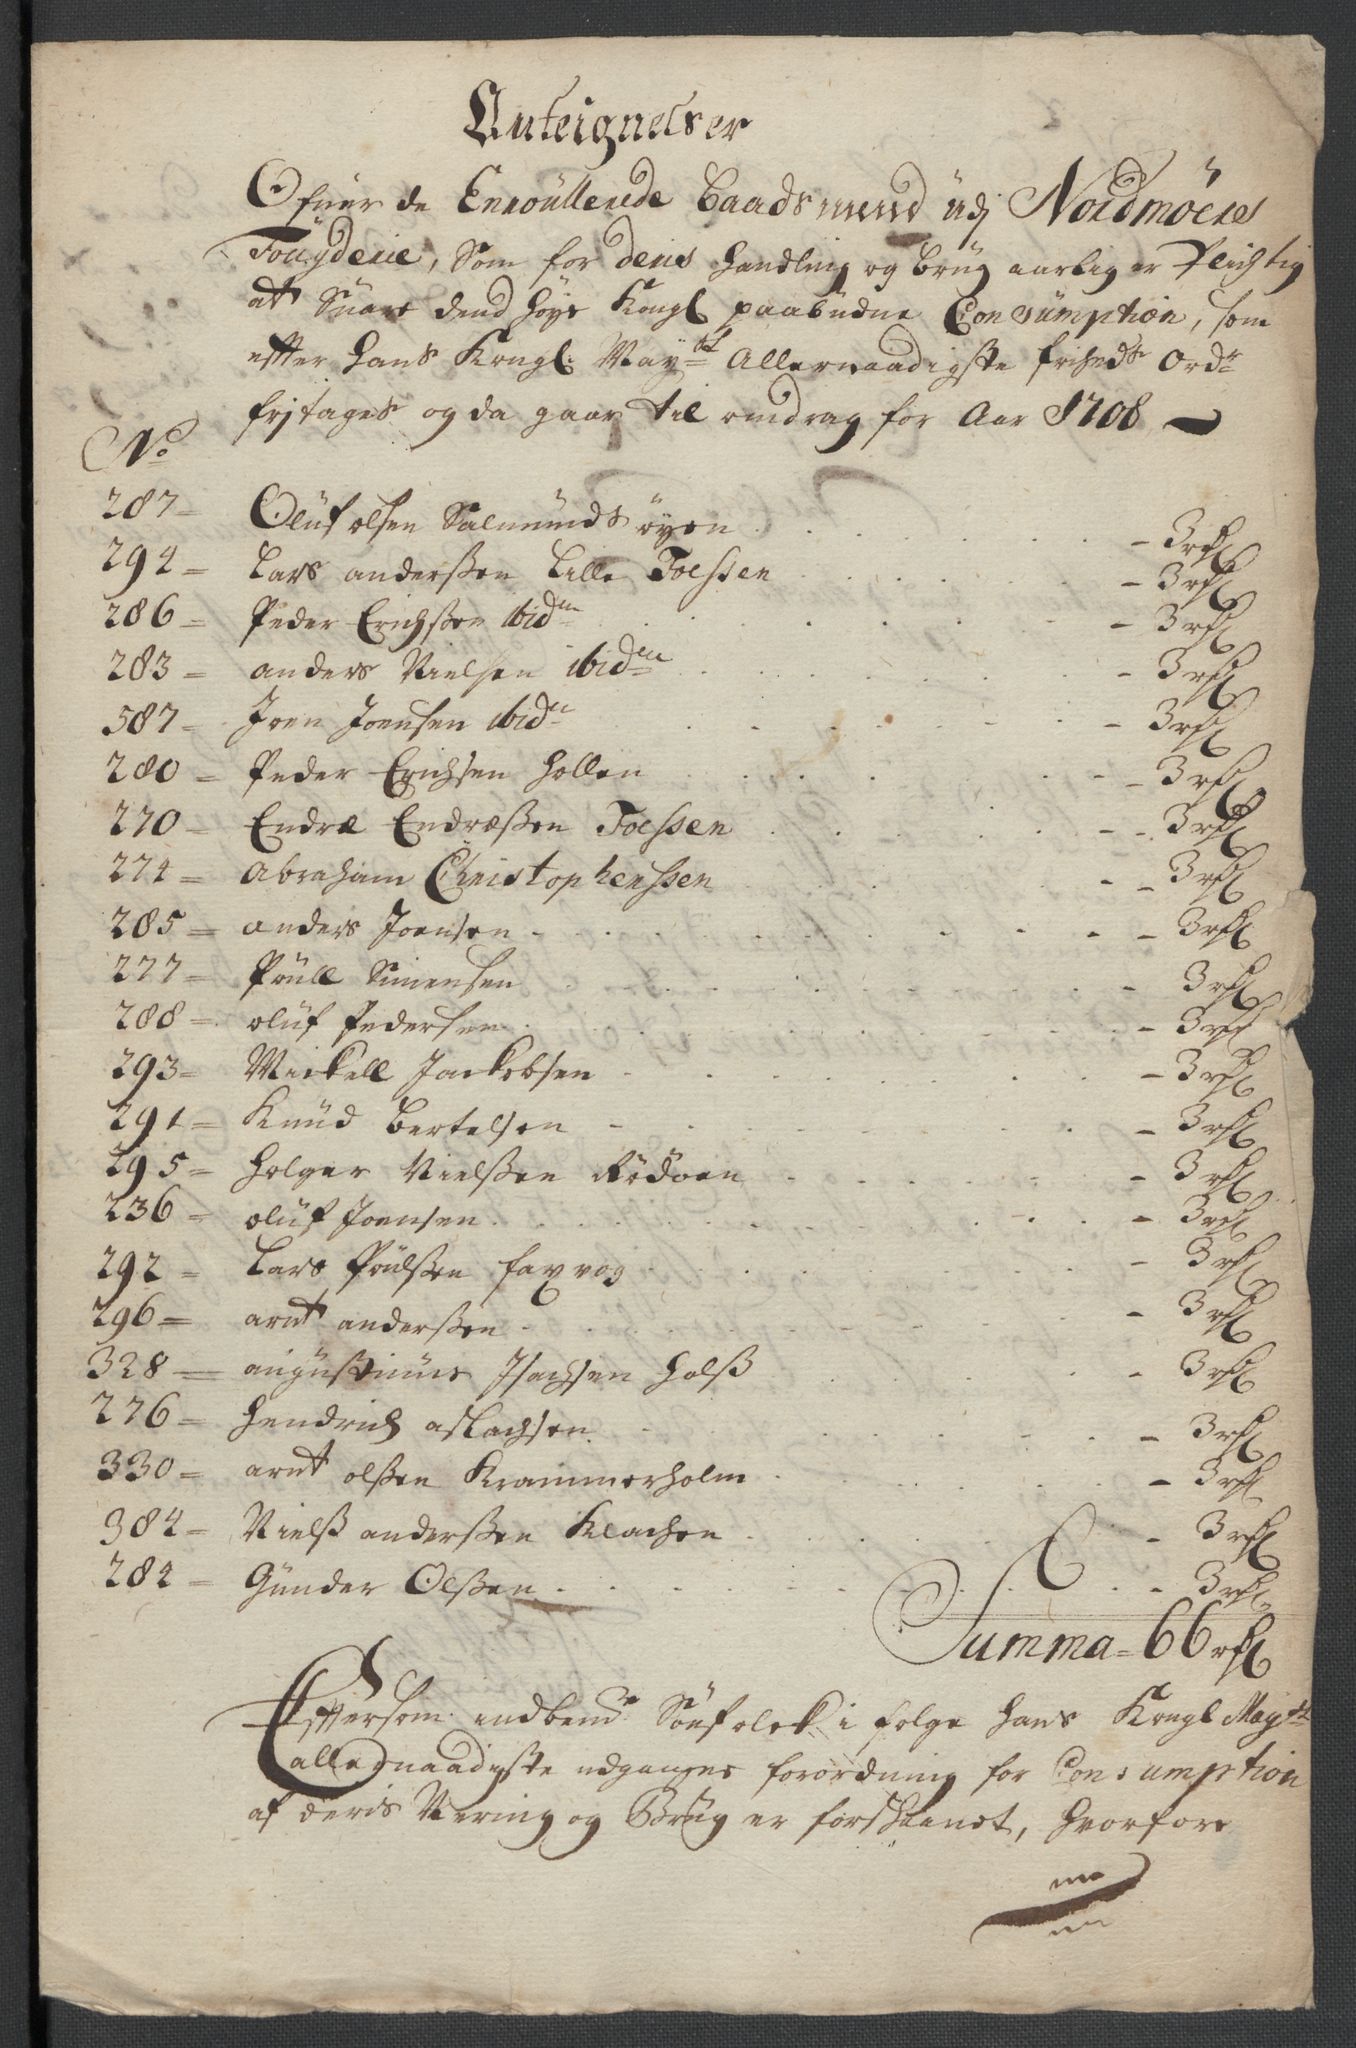 Anteignelser
Ofuer de Enroullerede Baadsmend udj Nordmöers
Fougderie, Som for deris Handling og brug aarlig er Plichtig
at Suare dend Høye Kongl paabudne Consumption, som
efter Hans Kongl: May:tt Allernaadigste friheds Ord:r
frjtages og da gaar til omdrag for Aar 1708
No
287 - Oluf olsen Salmunds öyen - 3 rdl
294 = Lars anderßen Lille Foeßen - 3 rdl
286 = Peder Erichßen ibid:m - 3 rdl
283 = anders Nielsen ibid:m - 3 rdl
587 - Joen Joensen ibid:m - 3 rdl
280 = Peder Erichsen Hollen - 3 rdl
270 - Endræ Endræßen Foessen - 3 rdl
274 = Abraham Christophersen - 3 rdl
285 = anders Joensen - 3 rdl
277 = Poull Simensen - 3 rdl
288 - oluf Pedersen - 3 rdl
293 = Mickell Jackobsen - 3 rdl
291 = Knud Bertelsen - 3 rdl
295 = Holger Nielßen Rödöen - 3 rdl
236 = oluf Joensen - 3 rdl
292 = Lars Poulßen faxvog - 3 rdl
296 = arnt anderßen - 3 rdl
328 = augustinus Isachsen Holß - 3 rdl
276 = Hendrich aslachsen - 3 rdl
330 = arnt olßen Krammerholm - 3 rdl
384 = Nielß anderßen Klachen - 3 rdl
284 = Gunder Olßen - 3 rdl
Summa = 66 rdl
Eftersom indbem:te Söefolck i følge Hans Kongl May:tt
allernaadigste udgangne forordning for Consumption
af deris Næring og Brug er forskaanet, Hvorfore